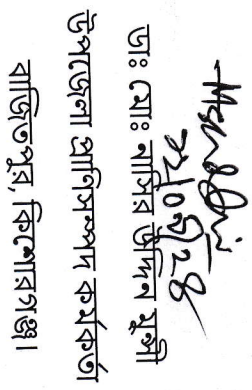 ২৮/০৪/২৪
ডাঃ মোঃ নাসির উদ্দিন মুন্সী
উপজেলা প্রাণিসম্পদ কর্মকর্তা
বাজিতপুর, কিশোরগঞ্জ।